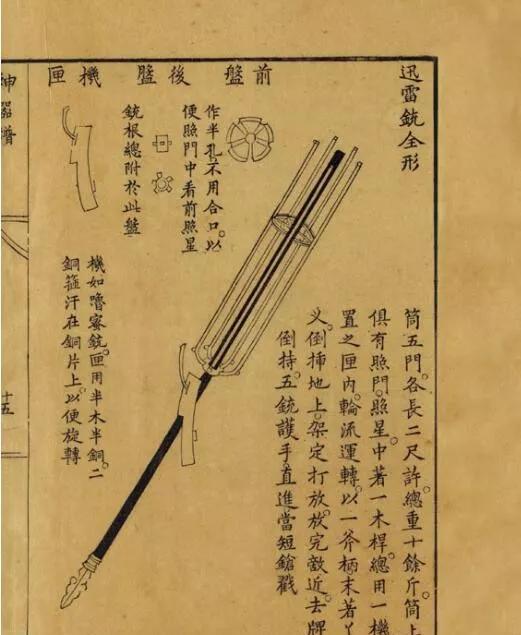 迅雷銃全形
筒五門。各長二尺許。總重十餘斤。筒上
俱有照門。照星。中著一木桿。總用一機
置之匣內。輪流運轉。以一斧柄末著丫
义。倒揷地上。架定打放。放完敵近去牌
倒持五銃護手。直進當短鎗戳
前盤
作半孔。不用合口。以
便照門中看前照星
後盤
銃根總附於此盤
機匣
機如嚕蜜銃。匣用半木半銅。二
銅箍汗在銅片上。以便旋轉
神器譜
十五